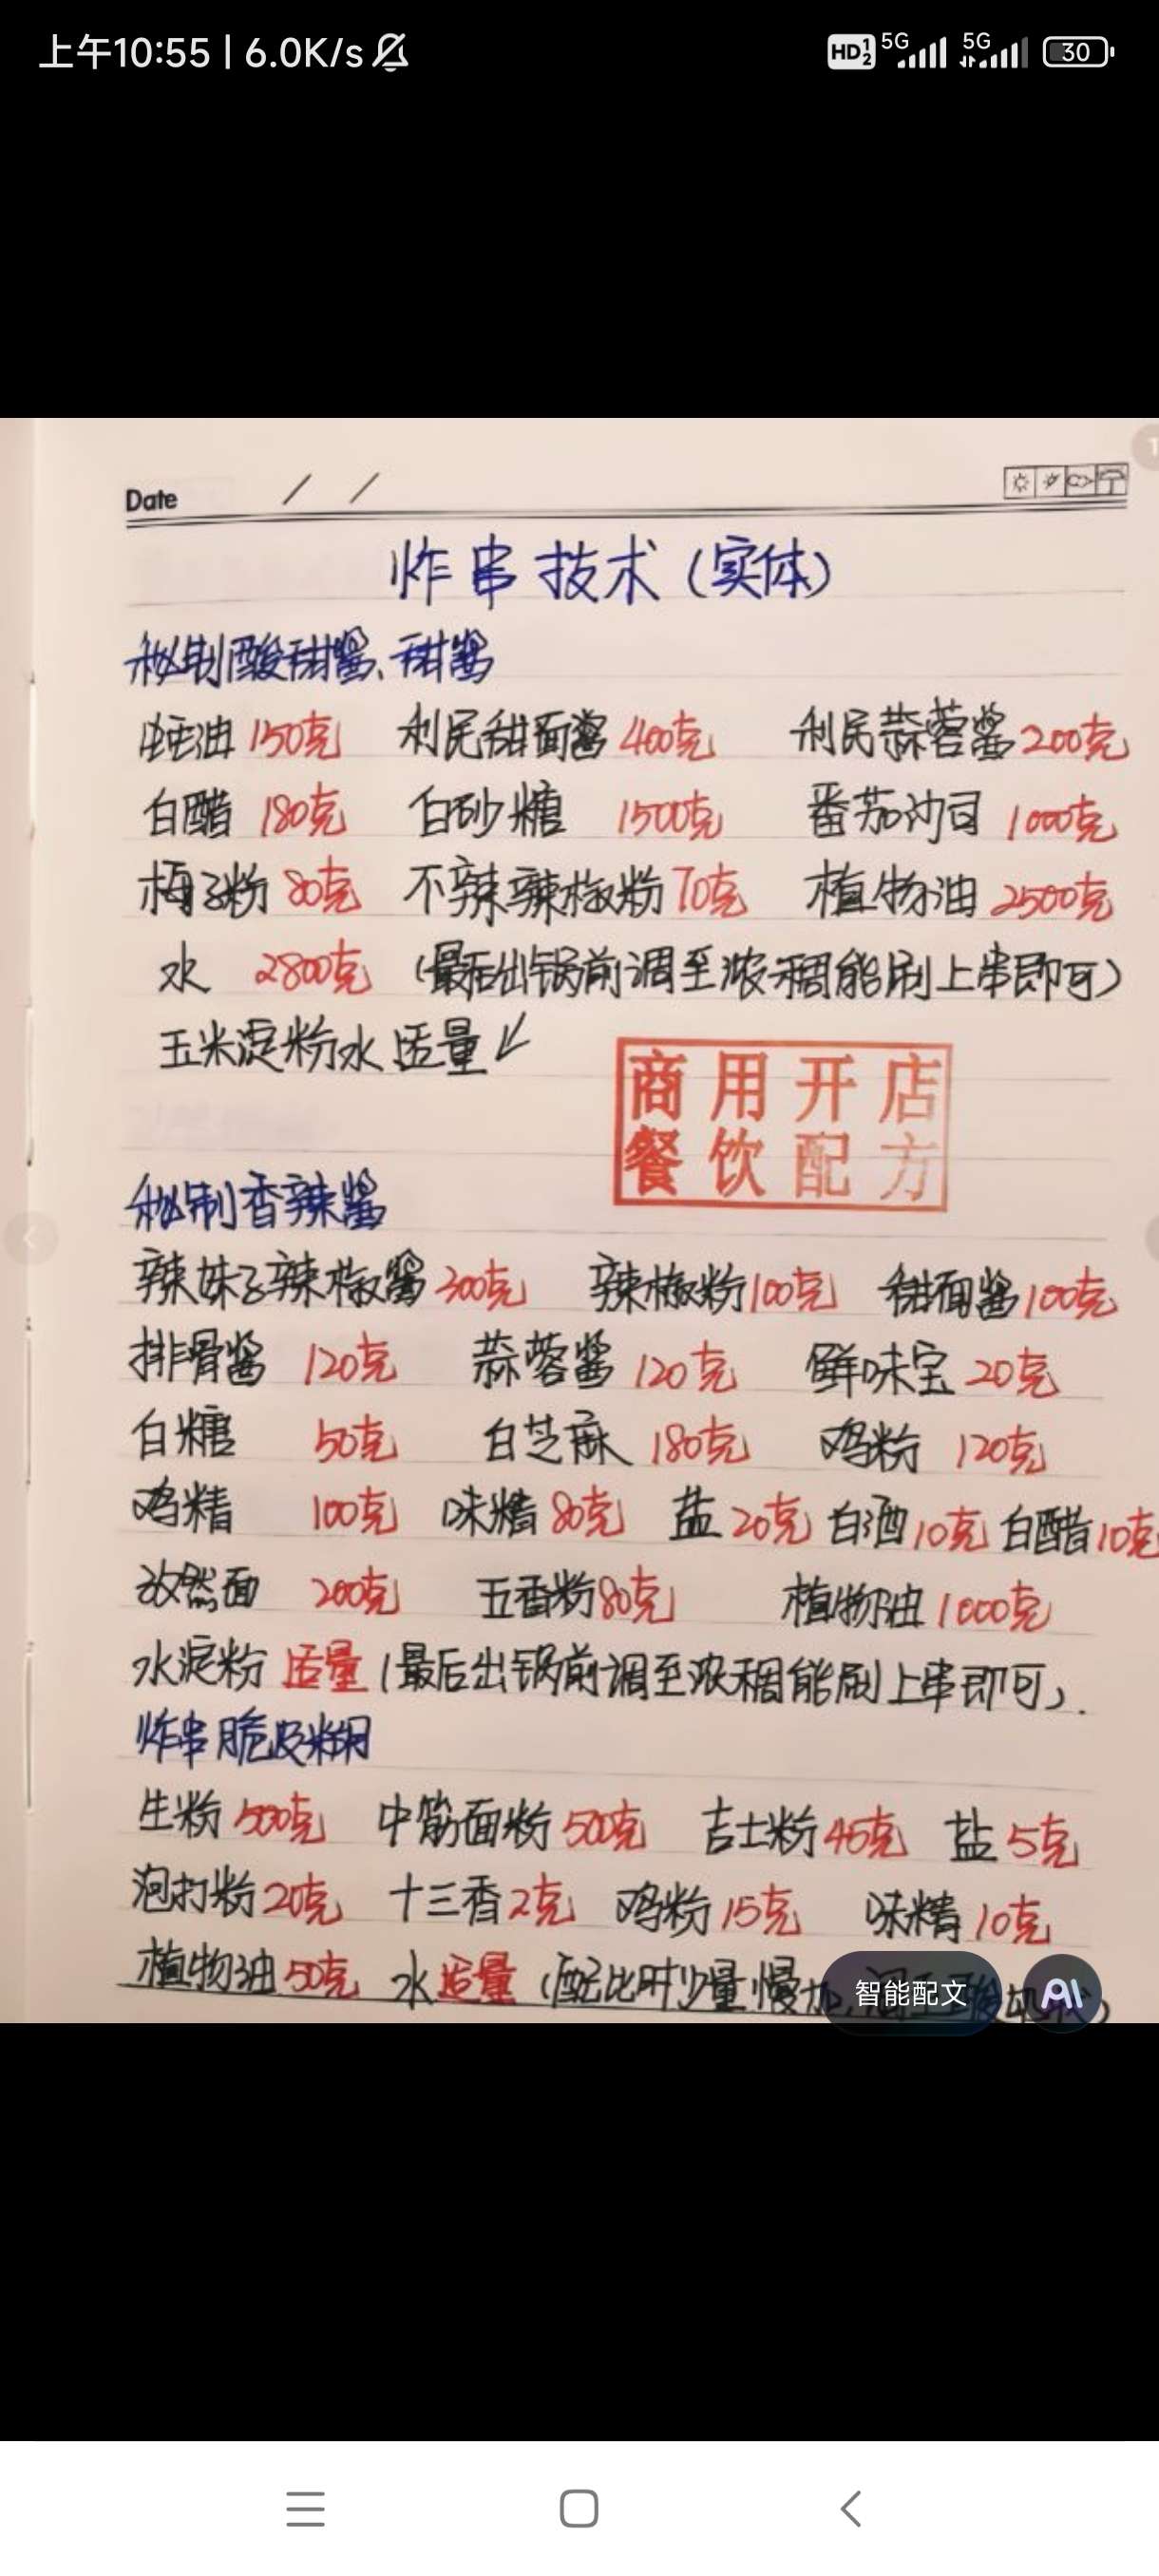 上午10:55 | 6.0K/s HD 1 2 5G 5G 30
Date / /
炸串技术(实体)
秘制酸甜酱、甜酱
蚝油150克 利民甜面酱400克 利民蒜蓉酱200克
白醋180克 白砂糖 1500克 番茄沙司1000克
梅子粉80克 不辣辣椒粉70克 植物油2500克
水 2800克 (最后出锅前调至浓稠能刷上串即可)
玉米淀粉水适量↙
商用开店
餐饮配方
秘制香辣酱
辣妹子辣椒酱300克 辣椒粉100克 甜面酱100克
排骨酱 120克 蒜蓉酱120克 鲜味宝20克
白糖 50克 白芝麻180克 鸡粉120克
鸡精 100克 味精80克 盐20克 白酒10克 白醋10克
孜然面 200克 五香粉80克 植物油1000克
水淀粉适量(最后出锅前调至浓稠能刷上串即可).
炸串脆皮糊
生粉500克 中筋面粉500克 吉士粉45克 盐5克
泡打粉20克 十三香2克 鸡粉15克 味精10克
植物油50克 水适量(配比时少量慢加,
智能配文
AI